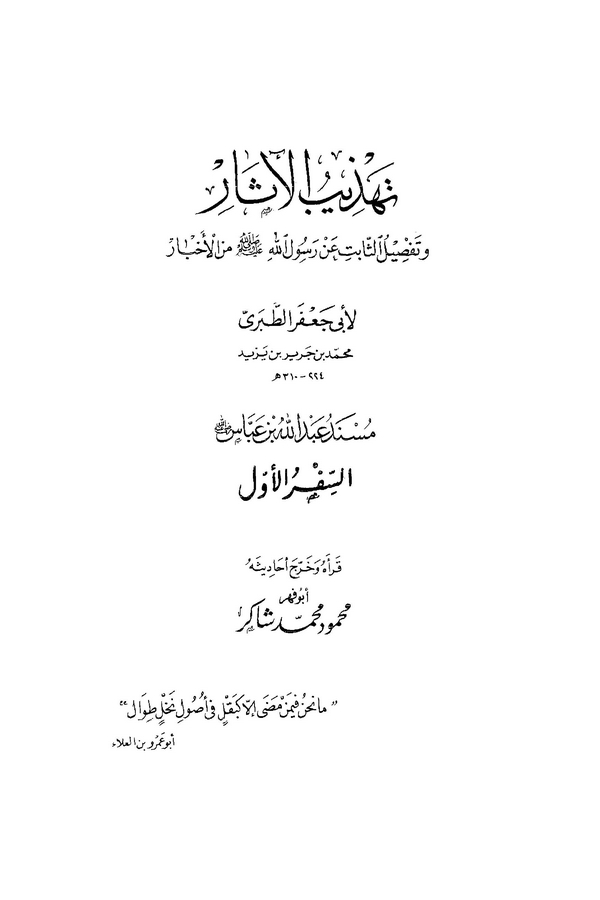 تهذيب الآثار
وتَفْصِيلُ الثَّابِتِ عَنْ رَسُولِ اللهِ ﷺ مِنَ الأَخْبَار
لأبى جَعْفَر الطَّبَرِىّ
محمّد بن جَرير بن يَزيد
٢٢٤ - ٣١٠ هـ
مُسْنَدُ عَبْدِ اللهِ بْنِ عَبَّاسٍ
السِّفْرُ الأَوَّل
قَرَأَهُ وَخَرَّجَ أحَادِيثَهُ
أبو فهر
محمود محمّد شاكر
"مانحنُ فيمَنْ مَضَى إلاّ كبَقْلٍ فى أُصُولِ نَخْلٍ طِوَال"
أبو عَمْرو بن العلاء